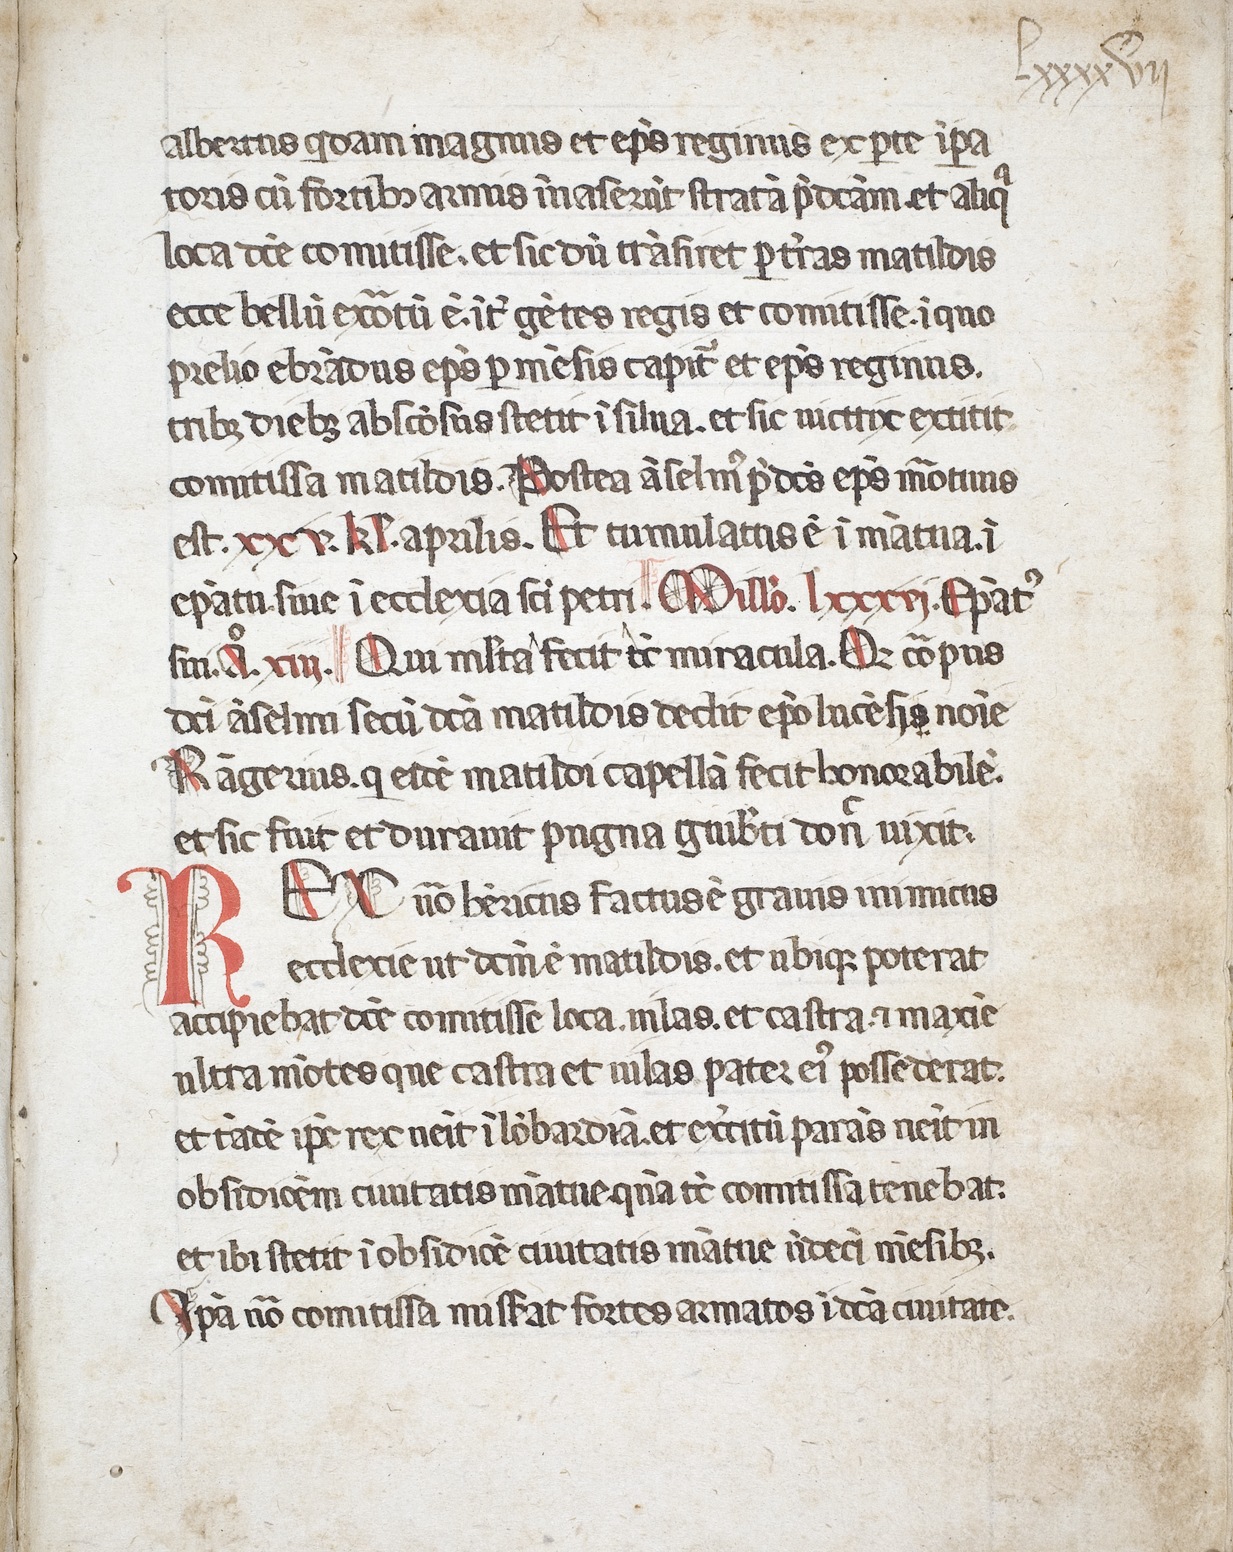 LxxxxVij
albertus qdam magnus et ep̃s reginus ex ꝑte ip̃a
toris cũ fortibꝫ armis inaserũt stratã p̃dcãm. et aliqᵃ
loca dc̃e comitisse. et sic dũ trãsiret ꝑ tr̃as matildis
ecce bellũ exc̃otũ ẽ. it̃ gẽtes regis et comitisse. ĩ quo
prelio ebrãdus ep̃s ꝑmẽsis capit᷑ et ep̃s reginus.
tribꝫ diebꝫ abscõsus stetit ĩ silua. et sic uictrix extitit
comitissa matildis. Postea ãselmꝰ p̃dcs̃ ep̃s mãotuus
est. xxv. kł. aprilis. Et tumulatus ẽ ĩ mãtua. ĩ
ep̃atu. siue ĩ ecclexia sc̃i petri. Millo. lxxxvi. Ep̃atꝰ
sui. Aº. xiii. Qui mlta fecit tc̃ miracula. Qꝛ cõpus
dc̃i ãselmi secũ dc̃a matildis dedit ep̃o lucẽsis noĩe
Rãgerius. q eidẽ matildi capellã fecit honorabilẽ.
et sic fuit et durauit pugna guib̃ti donᶜ uixit.
REX uõ hẽricus factus ẽ grauis inimicus
ecclexie ut dcm̃ ẽ matildis. et ubiqꝫ poterat
accipiebat dc̃e comitisse loca. uilas. et castra. ⁊ maxĩe
ultra mõtes que castra et uilas pater eiꝰ possederat.
et tãdẽ ip̃e rex uẽit ĩ lõbardiã. et exc̃itũ parãs uẽit in
obsidiõem ciuitatis mãtue. qũa tc̃ comitissa tenebat.
et ibi stetit ĩ obsidiõe ciuitatis mãtue ũdecĩ mẽsibꝫ.
Ip̃a uõ comitissa mis̃at fortes armatos ĩ dc̃a ciuitate.